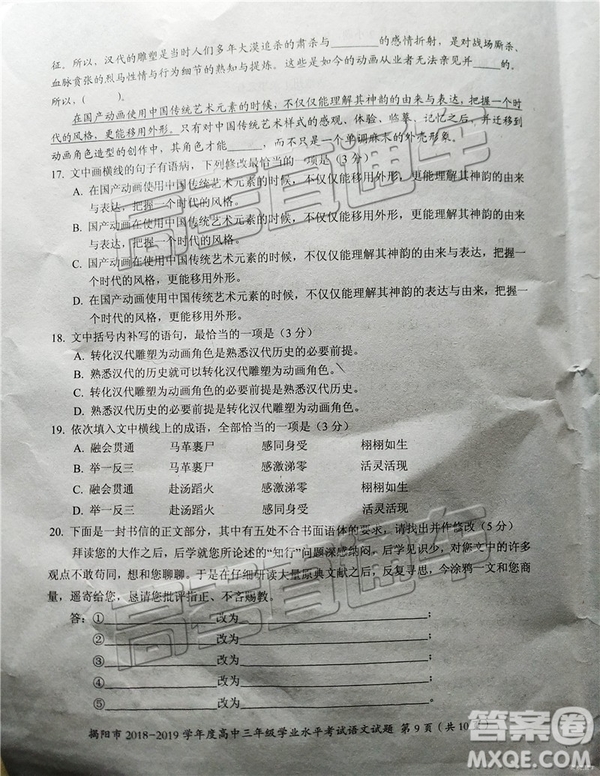 征。所以，汉代的雕塑是当时人们多年大漠追杀的肃杀与________的感情折射，是对战场厮杀、
血脉贲张的烈马性情与行为细节的熟知与提炼。这些是如今的动画从业者无法亲见并_____的。
所以，（        ）。
在国产动画使用中国传统艺术元素的时候，不仅仅能理解其神韵的由来与表达，把握一个时
代的风格，更能移用外形。只有对中国传统艺术样式的感观、体验、临摹、记忆之后，并实践到
动画角色造型的创作中，其角色才能____，而不只是一个单调麻木的外壳形象。
17. 文中画横线的句子有语病，下列修改最恰当的一项是（3 分）
A. 在国产动画使用中国传统艺术元素的时候，不仅仅能移用外形，更能理解其神韵的由来
与表达，把握一个时代的风格。
B. 国产动画在使用中国传统艺术元素的时候，不仅仅能移用外形，更能理解其神韵的由来
与表达，把握一个时代的风格。
C. 国产动画在使用中国传统艺术元素的时候，不仅仅能理解其神韵的由来与表达，把握一个
时代的风格，更能移用外形。
D. 在国产动画使用中国传统艺术元素的时候，不仅仅能移用外形，更能理解其神韵的由来
与表达，把握一个时代的风格。
18. 文中括号内补写的语句，最恰当的一项是（3 分）
A. 转化汉代雕塑为动画角色是熟悉汉代历史的必要前提。
B. 熟悉汉代的历史就可以转化汉代雕塑为动画角色。
C. 转化汉代雕塑为动画角色必须熟悉汉代的历史。
D. 熟悉汉代历史是转化汉代雕塑为动画角色的必要前提。
19. 依次填入文中横线上的成语，全部恰当的一项是（3 分）
A. 融会贯通 马革裹尸 感同身受 栩栩如生
B. 举一反三 马革裹尸 感激涕零 活灵活现
C. 融会贯通 赴汤蹈火 感激涕零 栩栩如生
D. 举一反三 赴汤蹈火 感同身受 活灵活现
20. 下面是一封书信的正文部分，其中有五处不合书面语体的要求，请找出并作修改（5 分）
拜读您的大作之后，后学就您所论述的“知行”问题深感纳闷。后学见识少，对您文中的许多
观点不敢苟同，想和您聊聊。于是在仔细研读大量原典文献之后，反复寻思，今涂鸦一文，已完
篇，遥寄给您，恳请您批评指正、不吝赐教。
答：①______________改为____________________；
②______________改为____________________；
③______________改为____________________；
④______________改为____________________；
⑤______________改为____________________；
揭阳市 2018-2019 学年度高中三年级学业水平考试语文试题 第 9 页（共 10 页）
高考直通车
高考直通车
高考直通车
答案圈